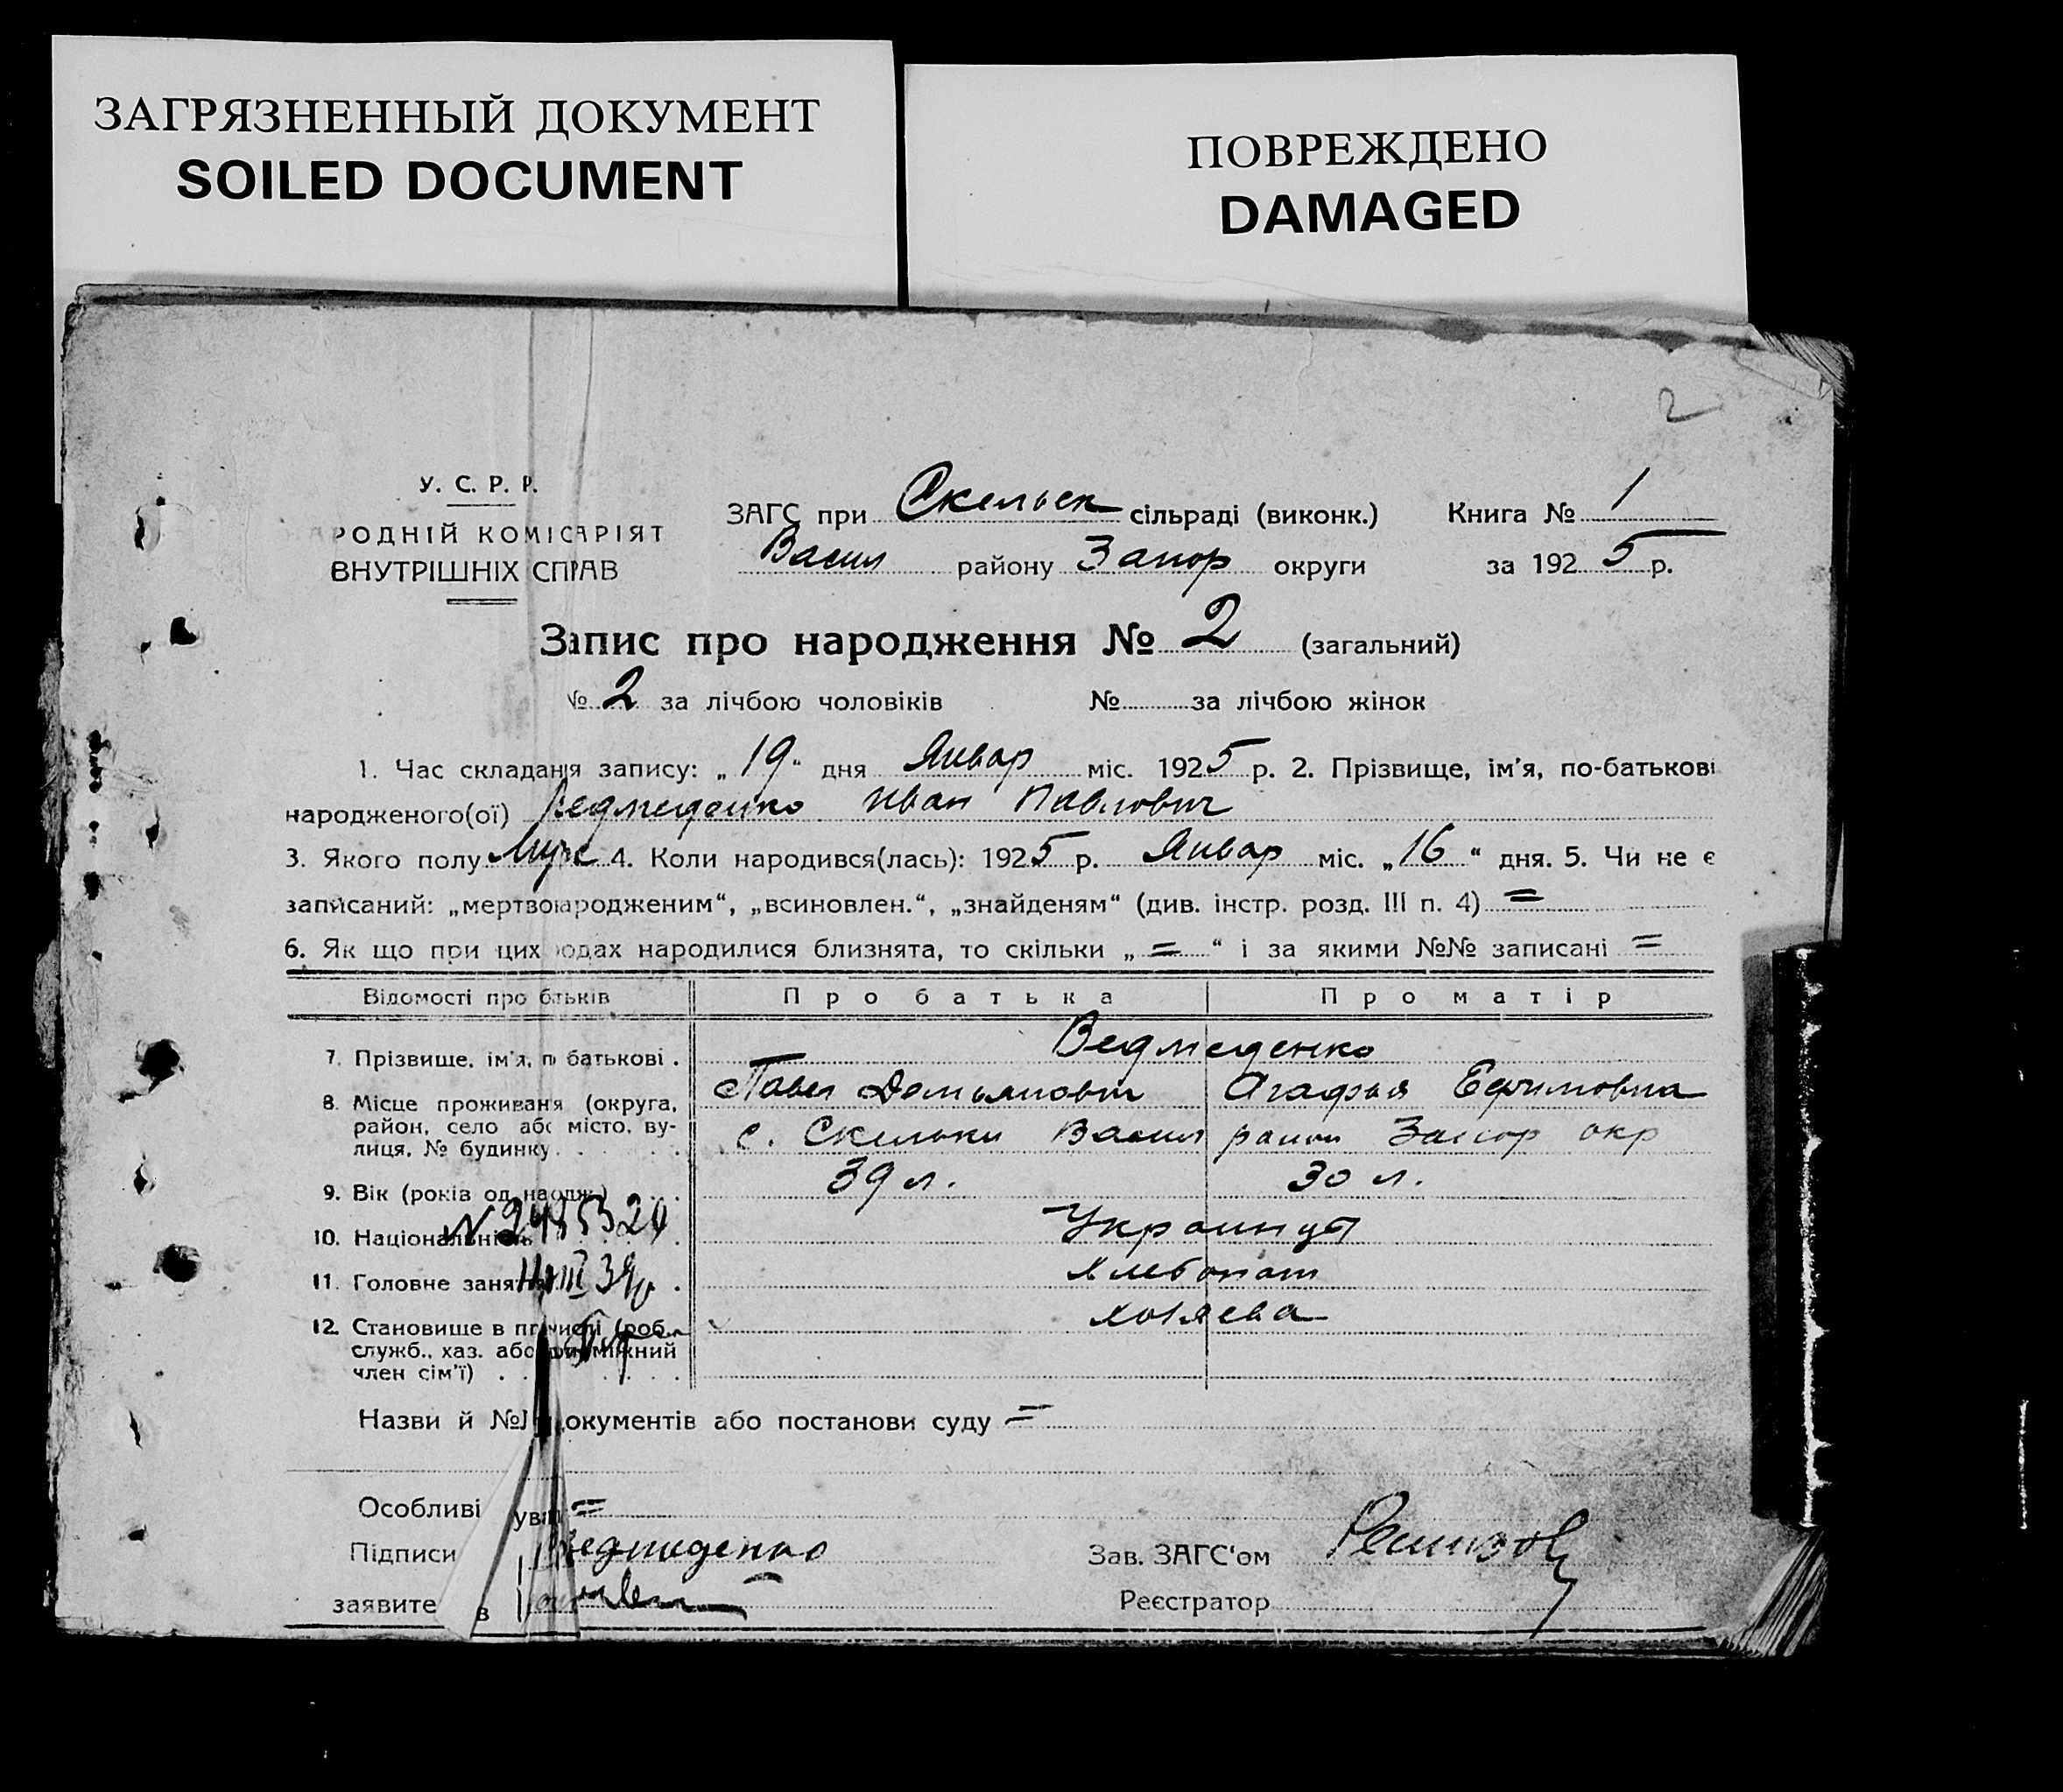 ЗАГРЯЗНЕННЫЙ ДОКУМЕНТ
SOILED DOCUMENT
ПОВРЕЖДЕНО
DAMAGED
2
У. С. Р. Р.
РОДНІЙ КОМІСАРІЯТ
ВНУТРІШНІХ СПРАВ
ЗАГС при Скельск сільраді (виконк.) Книга № 1
Васил району Запор округи за 1925 р.
Запис про народження № 2 (загальний)
№ 2 за лічбою чоловіків № за лічбою жінок
1. Час складання запису: „19“ дня Январ міс. 1925 р. 2. Прізвище, ім'я, по-батькові
народженого(ої) Ведмеденко Иван Павлович
3. Якого полу Муж 4. Коли народився(лась): 1925 р. Январ міс. „16“ дня. 5. Чи не є
записаний: „мертвонародженим“, „всиновлен.“, „знайденям“ (див. інстр. розд. III п. 4) =
6. Як що при цих родах народилися близнята, то скільки „=“ і за якими №№ записані =
Відомості про батьків Про батька Про матір
7. Прізвище, ім'я, по батькові . Ведмеденко
Павел Демьянович Агафья Ефимовна
8. Місце проживання (округа,
район, село або місто, ву-
лиця, № будинку . . . . с. Скельки Васил район Запор окр
9. Вік (років од народж.) . . . 39 л. 30 л.
10. Національність Украинцы
11. Головне заняття Хлебопаш
12. Становище в промислі (роб.,
служб., хаз. або допоміжний
член сім'ї) . . . . . . хозяева
Назви й №№ документів або постанови суду =
Особливі уваги =
Підписи Ведмеденко Зав. ЗАГС'ом
заявите в Реєстратор